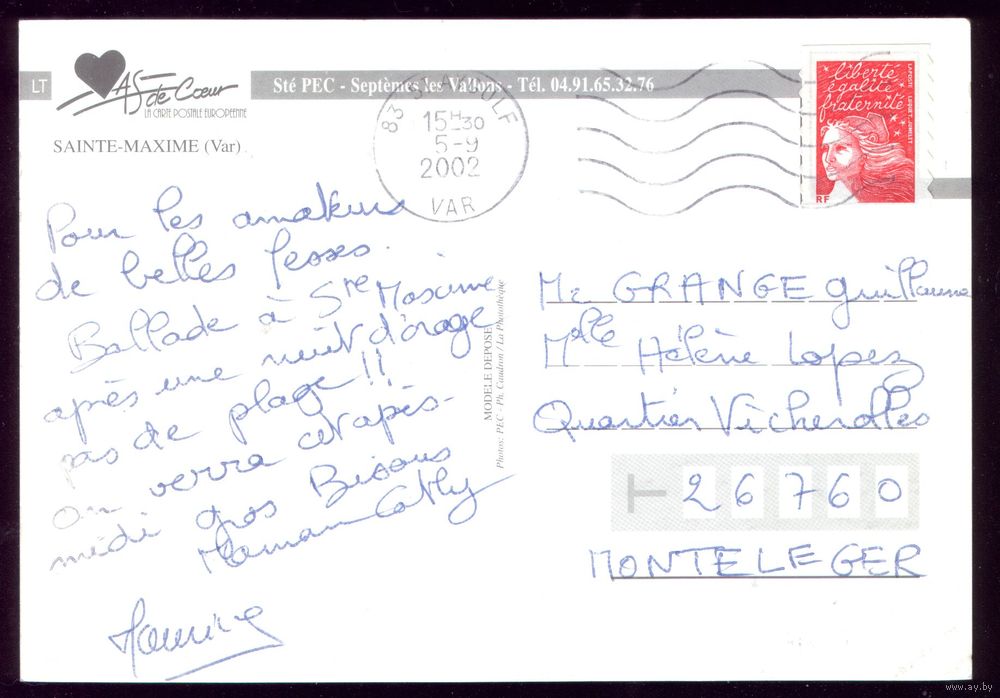 LT
AS de Cœur
LA CARTE POSTALE EUROPÉENNE
Sté PEC - Septèmes les Vallons - Tél. 04.91.65.32.76
SAINTE-MAXIME (Var)
83 ST AYGULF
15H30
5-9
2002
VAR
liberté
égalité
fraternité
RF
LA POSTE
Pour les amateurs
de belles fesses.
Ballade à Ste Maxime
après une nuit d'orage
pas de plage !!
on verra cet après-
médi gros Bisous
Maman Cathy
MODELE DEPOSE
Photos: PEC - Ph. Caudron / La Photothèque
Mr GRANGE Guillaume
Mlle Hélène Lopez
Quartier Vicherolles
26760
MONTELEGER
www.ay.by